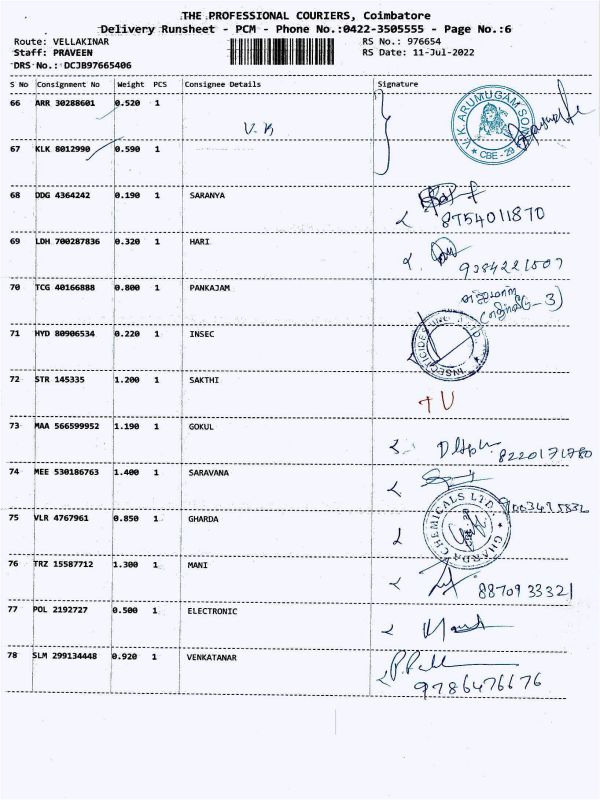 THE PROFESSIONAL COURIERS, Coimbatore
Delivery Runsheet - PCM - Phone No.:0422-3505555 - Page No.:6
Route: VELLAKINAR RS No.: 976654
Staff: PRAVEEN RS Date: 11-Jul-2022
DRS No.: DCJB97665406
S No Consignment No Weight PCS Consignee Details Signature
66 ARR 30288601 0.520 1 V.K
V.K.ARUMUGAM SONS
* CBE - 29 *
67 KLK 8012990 0.590 1
68 DDG 4364242 0.190 1 SARANYA
8754011870
69 LDH 700287836 0.320 1 HARI
9284221507
70 TCG 40166888 0.800 1 PANKAJAM
71 HYD 80906534 0.220 1 INSEC
72 STR 145335 1.200 1 SAKTHI
TV
73 MAA 566599952 1.190 1 GOKUL
8220171780
74 MEE 530186763 1.400 1 SARAVANA
75 VLR 4767961 0.850 1 GHARDA
GHARDA CHEMICALS LTD.
76 TRZ 15587712 1.300 1 MANI
8870933321
77 POL 2192727 0.500 1 ELECTRONIC
78 SLM 299134448 0.920 1 VENKATANAR
9786476676